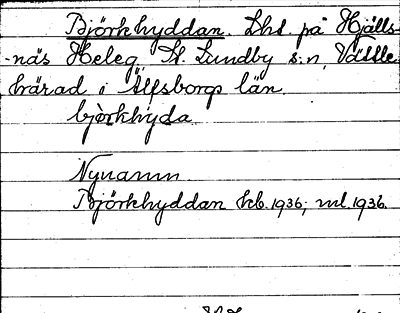 Björkhyddan. Lhs. på Hjälls-
-näs Heleg, St. Lundby s:n, Vättle
härad i Älfsborgs län.
bjòrkhyda
Nynamn
Björkhyddan kb. 1936; ml. 1936.